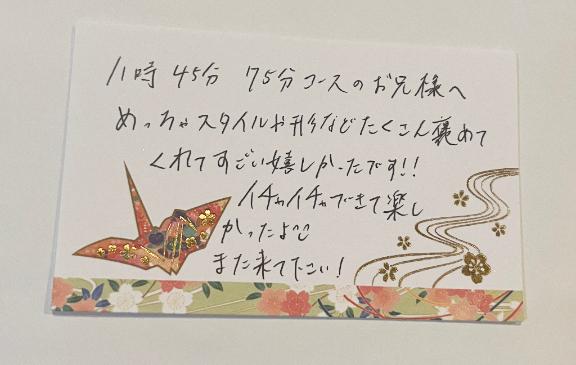 11時45分 75分コースのお兄様へ
めっちゃスタイルや形などたくさん褒めて
くれてすごい嬉しかったです!!
イチャイチャできて楽し
かったよ^^
また来て下さい!